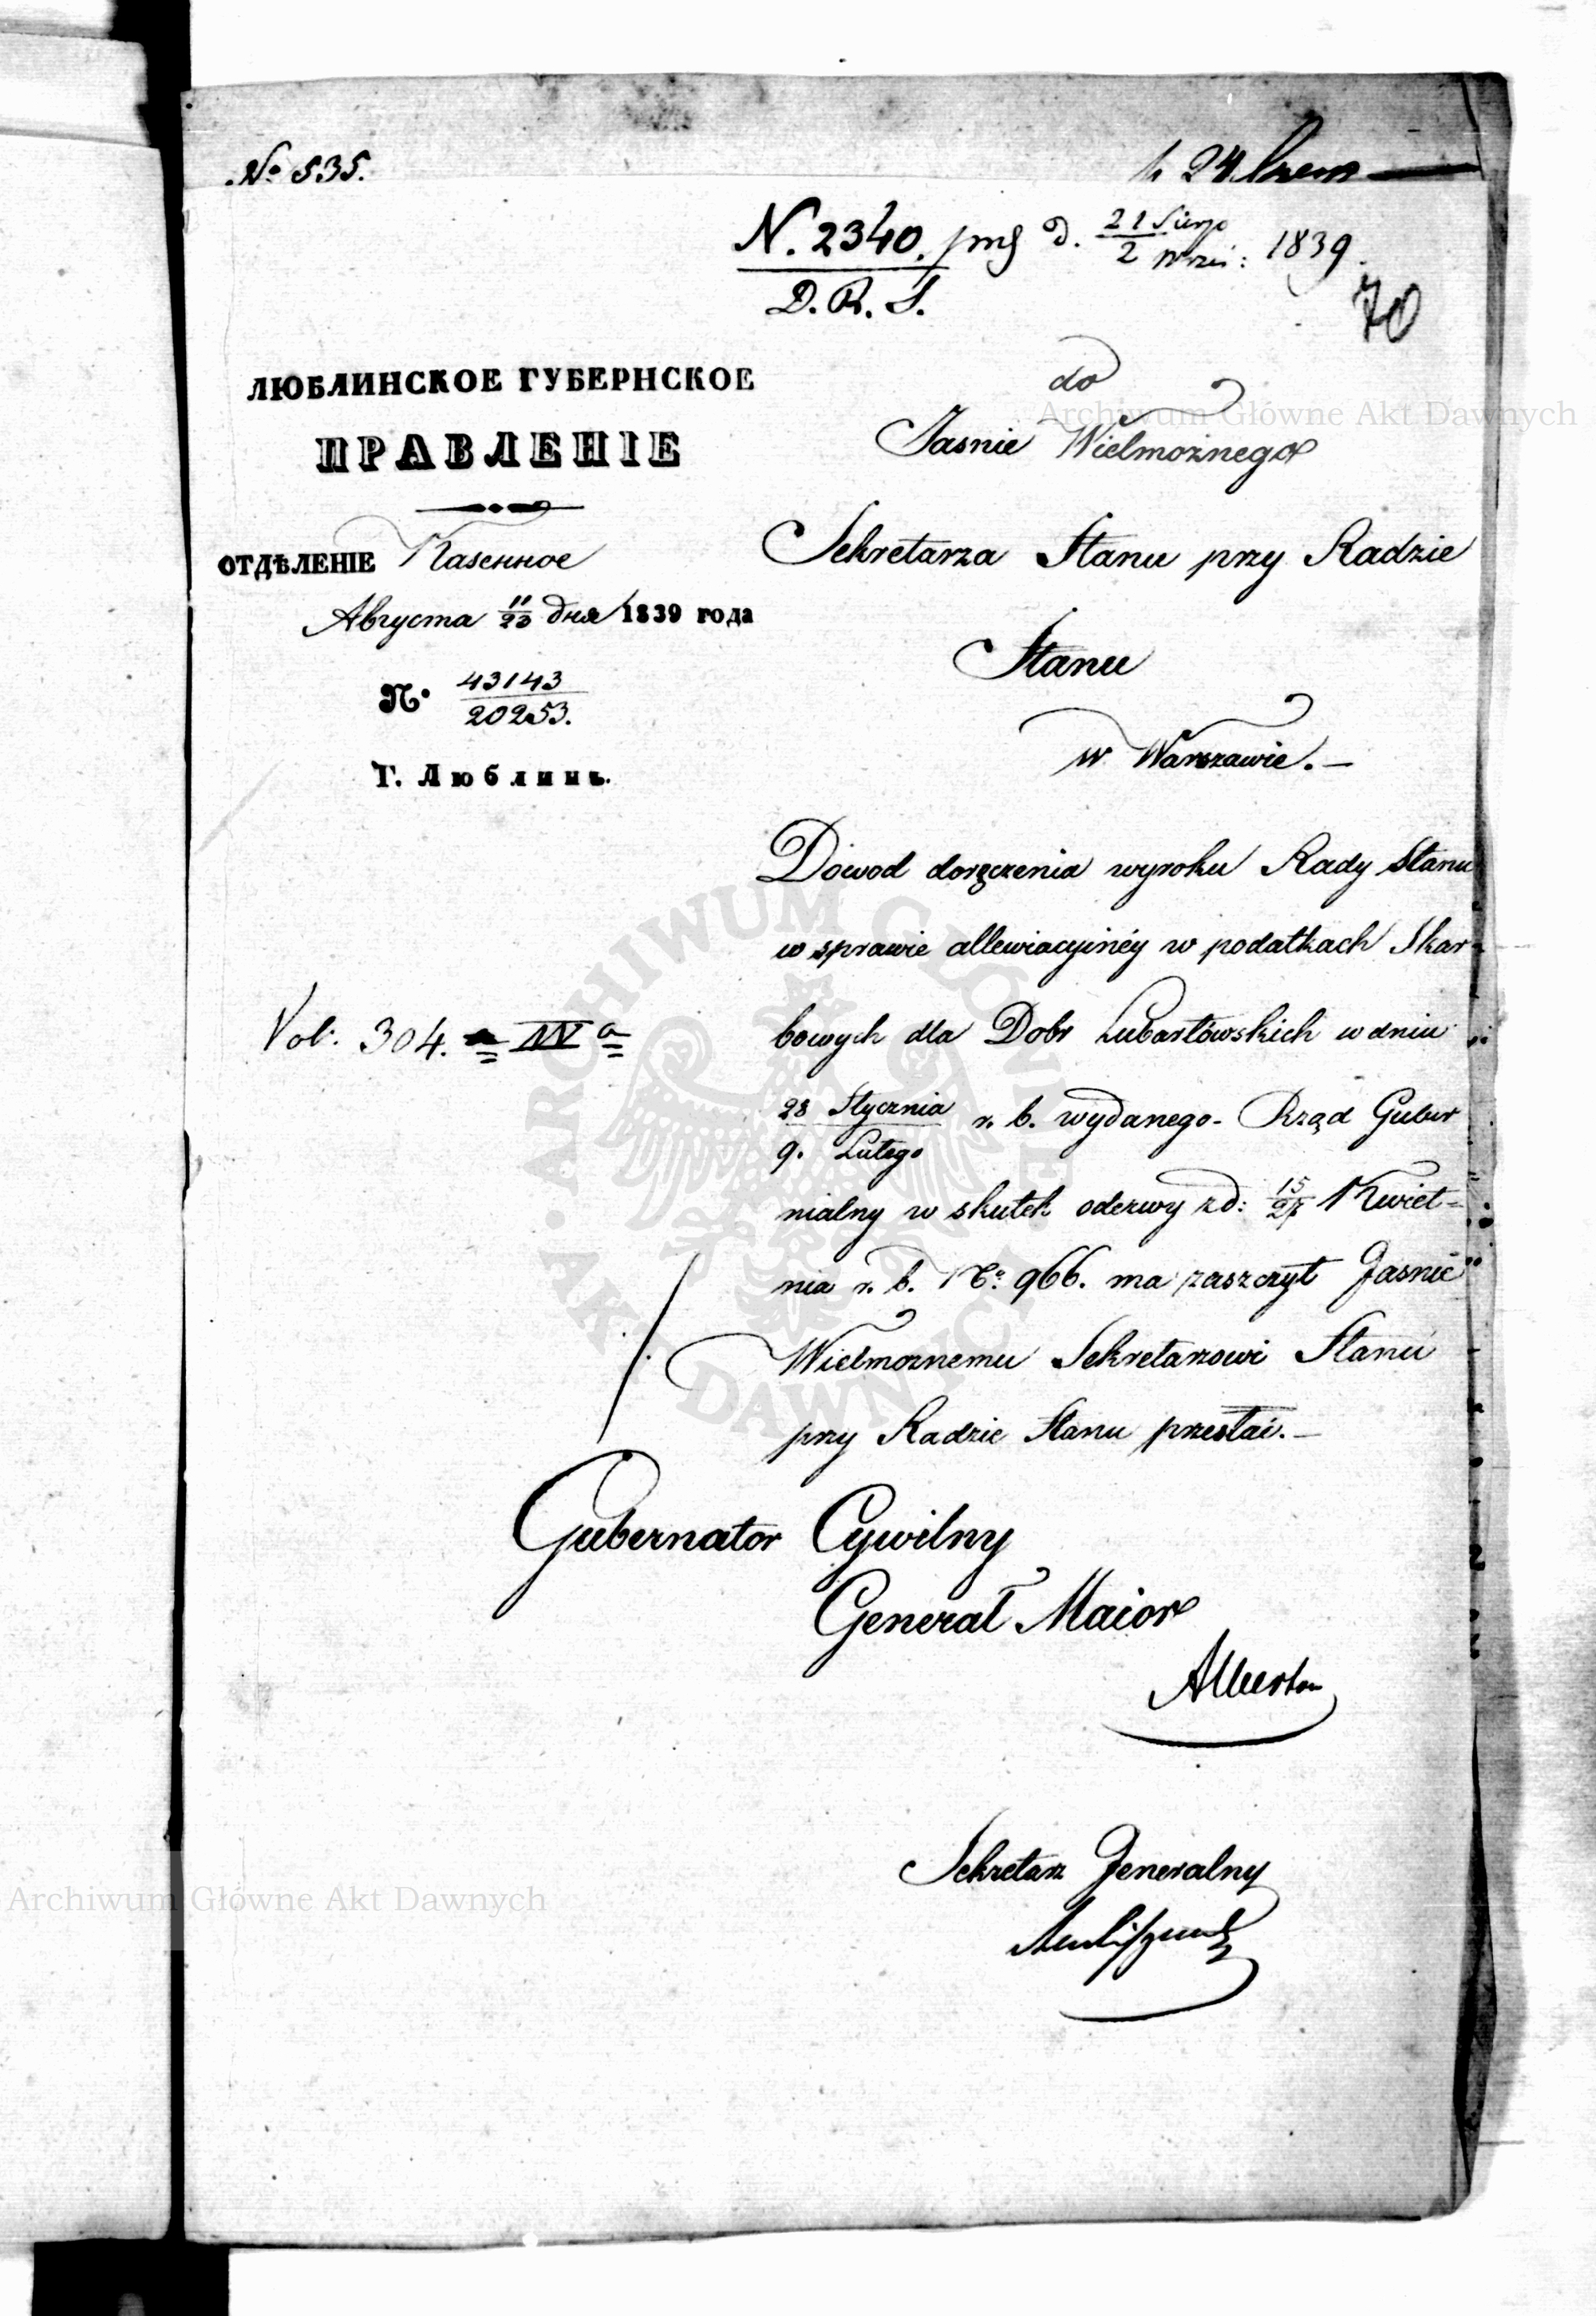 № 535.
N. 2340. d. 21 Sierp 1839.
2 Wrześ:
D. R. S.
70
ЛЮБЛИНСКОЕ ГУБЕРНСКОЕ
ПРАВЛЕНІЕ
ОТДѢЛЕНІЕ Казенное
Августа 11/23 дня 1839 года
№ 43143
20253.
Г. Люблинъ.
do
Jasnie Wielmożnego
Sekretarza Stanu przy Radzie
Stanu
w Warszawie.—
Vol: 304.
Dowod doręczenia wyroku Rady Stanu
w sprawie allewiacyinéy w podatkach Skar-
bowych dla Dobr Lubartowskich w dniu
28 Stycznia r. b. wydanego- Rząd Guber
9. Lutego
nialny w skutek odezwy z d: 15/27 Kwiet=
nia r. b. No 966. ma zaszczyt Jasnie
Wielmożnemu Sekretarzowi Stanu
przy Radzie Stanu przesłać.—
Gubernator Cywilny
Generał Maior
Albertow
Sekretarz Jeneralny
Archiwum Główne Akt Dawnych
ARCHIWUM GŁÓWNE AKT DAWNYCH
Archiwum Główne Akt Dawnych